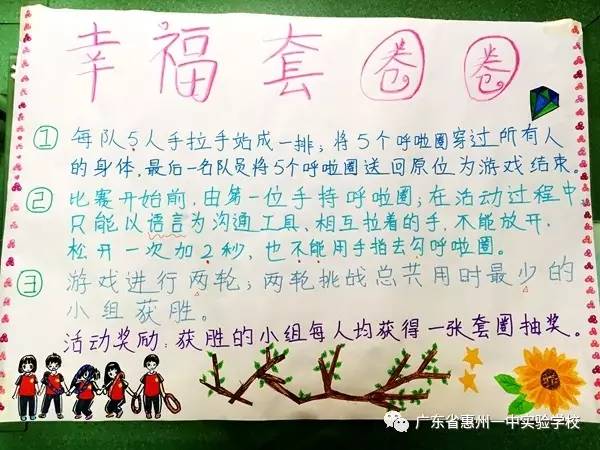 幸福套圈圈
① 每队5人手拉手站成一排；将5个呼啦圈穿过所有人
的身体，最后一名队员将5个呼啦圈送回原位为游戏结束。
② 比赛开始前，由第一位手持呼啦圈；在活动过程中
只能以语言为沟通工具，相互拉着的手，不能放开，
松开一次加2秒，也不能用手指去勾呼啦圈。
③ 游戏进行两轮；两轮挑战总共用时最少的
小组获胜。
活动奖励：获胜的小组每人均获得一张套圈抽奖。
广东省惠州一中实验学校